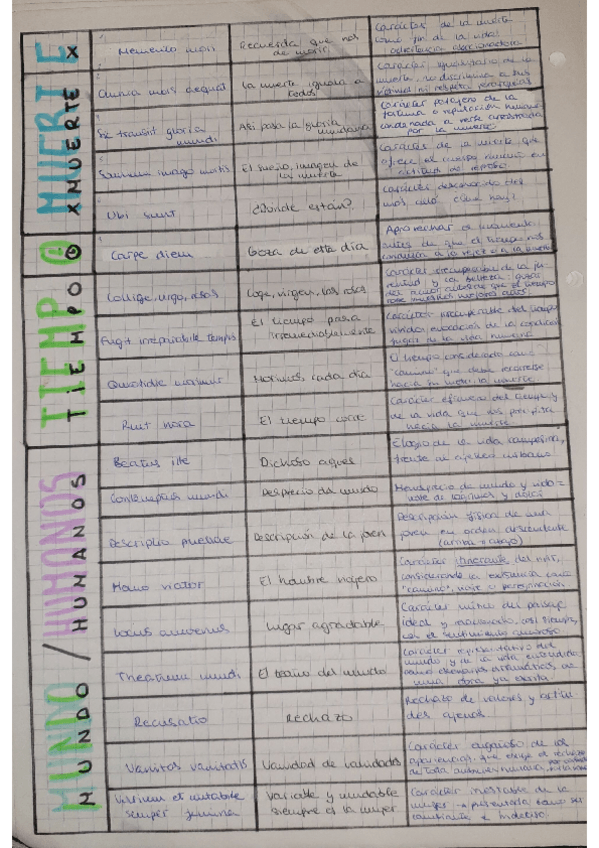 MUERTE
X MUERTE X
Memento mori
Recuerda que has de morir
Carácter de la muerte
como fin de la vida:
Omnia mors aequat
La muerte iguala a
todos
Carácter igualitario de la
muerte, no discrimina a sus
víctimas ni respeta jerarquías
Sic transit gloria
mundi
Así pasa la gloria
mundana
Carácter pasajero de la
fortuna o reputación humana
condenada a verse
por la muerte
Somnium imago mortis
El sueño, imagen de
la muerte
Carácter de la muerte que
el cuerpo en
actitud de reposo
Ubi sunt
¿Dónde están?
Carácter desconocido del
más allá
TIEMPO
TIEMPO
Carpe diem
Goza de este día
Aprovechar el momento
antes de que el tiempo nos
a la vejez o a la muerte
Collige, virgo, rosas
Coge, virgen, las rosas
Carácter de la ju-
ventud y la belleza:
del amor antes de que el tiempo
robe nuestros mejores años
Fugit irreparabile tempus
El tiempo pasa
irremediablemente
Carácter irrecuperable del tiempo
vivido, evocación de la condición
fugaz de la vida humana
Quotidie morimur
Morimos cada día
El tiempo considerado como
"camino" que debe recorrerse
hacia la muerte
Ruit hora
El tiempo corre
Carácter efímero del tiempo y
de la vida que nos precipita
hacia la muerte
MUNDO / HUMANOS
MUNDO / HUMANOS
Beatus ille
Dichoso aquel
Elogio de la vida campesina,
frente al ajetreo urbano
Contemptus mundi
Desprecio del mundo
Menosprecio del mundo y
Descriptio puellae
Descripción de la joven
Descripción física de una
joven en orden descendente
(arriba a abajo)
Homo viator
El hombre viajero
Carácter itinerante del vivir,
considerando la existencia como
"camino", viaje o peregrinación
Locus amoenus
Lugar agradable
Carácter mítico del paisaje
ideal y casi siempre,
con el sentimiento amoroso
Theatrum mundi
El teatro del mundo
Carácter representativo del
mundo y de la vida entendidos
como escenarios dramáticos, de
una obra ya escrita
Recusatio
Rechazo
Rechazo de valores y actitu
des ajenas
Vanitas vanitatis
Vanidad de vanidades
Carácter engañoso de las
apariencias, que exige el rechazo
de toda
Varium et mutabile
semper femina
Variable y mudable
siempre es la mujer
Carácter inestable de la
mujer → presentada como ser
cambiante e indeciso